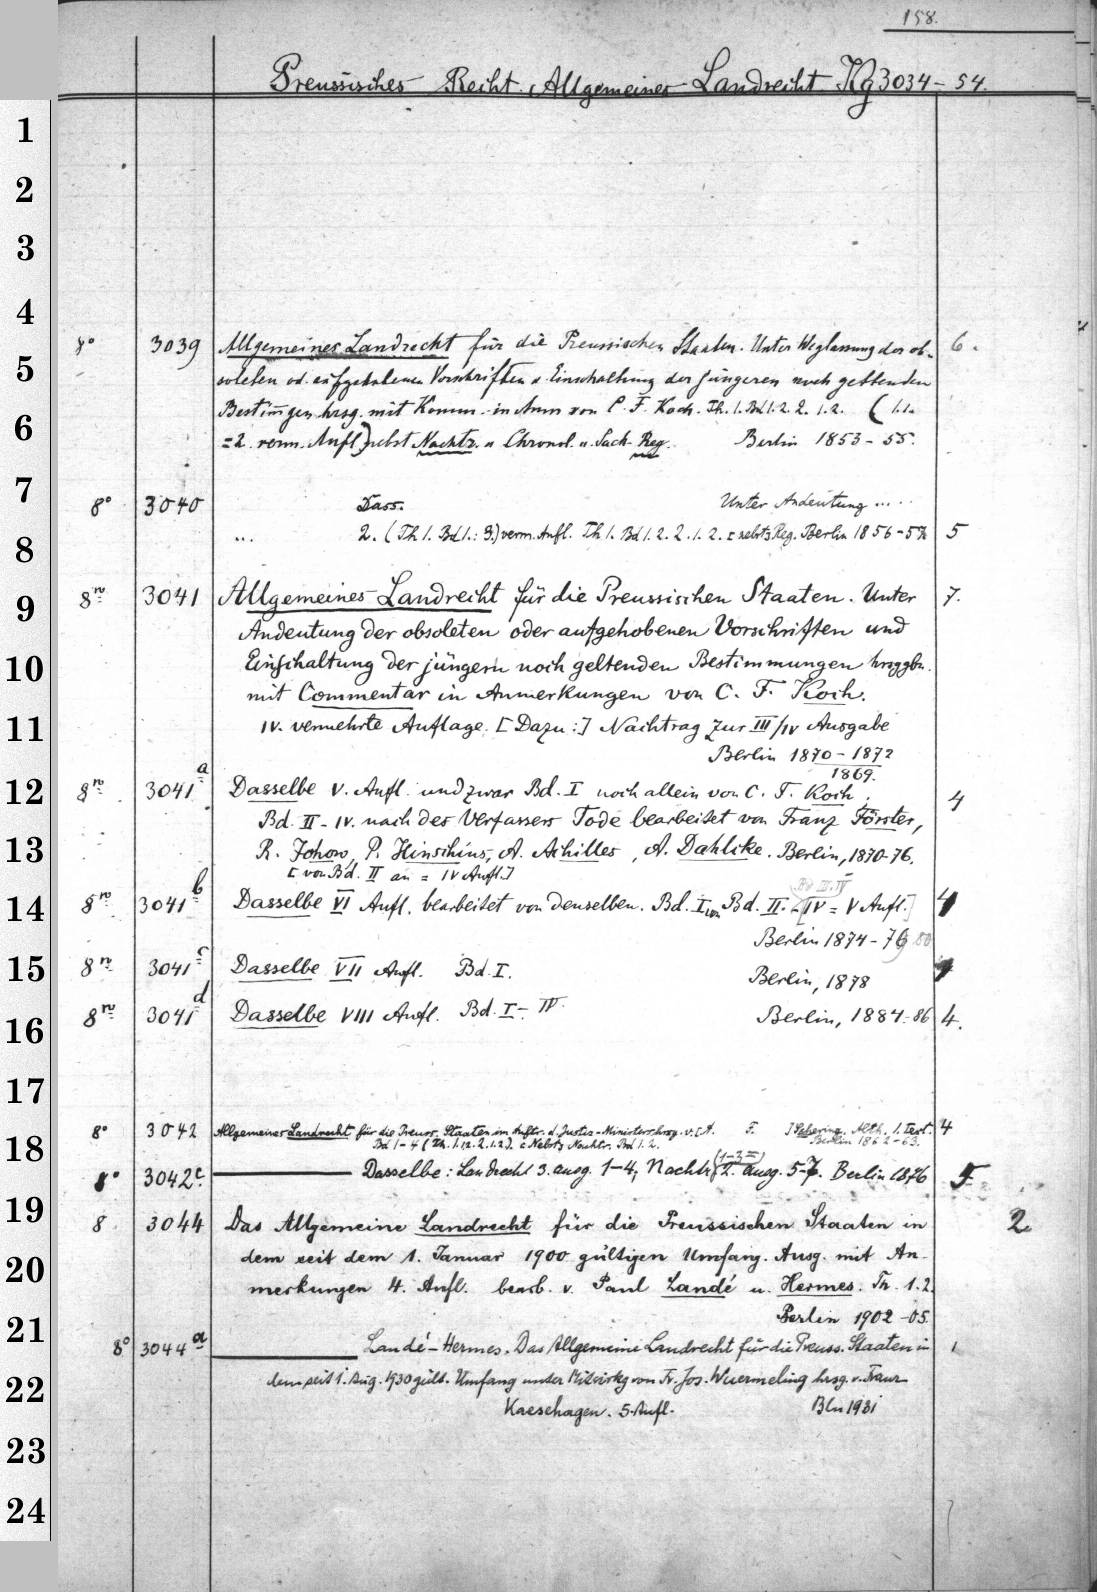 158.
Preussisches Recht, Allgemeines Landrecht Kg 3034-54.
8° 3039 Allgemeines Landrecht für die Preussischen Staaten. Unter Weglassung der ob- 6.
soleten od. aufgehobenen Vorschriften u. Einschaltung der jüngeren noch geltenden
Bestim̄gen hrsg. mit Komm. in Anm von C. F. Koch. Th. 1. Bd 1. 2. 2. 1. 2. (1.1.
= 2. verm. Aufl.) nebst Nachtr. u Chronol. u. Sach-Reg. Berlin 1853-55.
8° 3040 Dass. Unter Andeutung .....
... 2. (Th 1. Bd 1.: 3.) verm. Aufl. Th 1. Bd 1. 2. 2. 1. 2. nebst Reg. Berlin 1856-57 5
8vo 3041 Allgemeines Landrecht für die Preussischen Staaten. Unter 7.
Andeutung der obsoleten oder aufgehobenen Vorschriften und
Einschaltung der jüngern noch geltenden Bestimmungen hrsggbn.
mit Commentar in Anmerkungen von C. F. Koch.
IV. vermehrte Auflage. [Dazu:] Nachtrag zur III/IV Ausgabe
Berlin 1870-1872
1869.
8vo 3041a Dasselbe V. Aufl. und zwar Bd. I noch allein von C. F. Koch, 4
Bd. II-IV. nach des Verfassers Tode bearbeitet von Franz Förster,
R. Johow, P. Hinschius, A. Achilles, A. Dahlcke. Berlin, 1870-76.
[von Bd. II an = IV Aufl.]
Bd III. IV
8vo 3041b Dasselbe VI Aufl. bearbeitet von denselben. Bd. I, Bd. II.-[IV = V Aufl.] 4
Berlin 1874-76 80
8vo 3041c Dasselbe VII Aufl. Bd. I. Berlin, 1878
8vo 3041d Dasselbe VIII Aufl. Bd. I-IV. Berlin, 1884-86 4.
8° 3042 Allgemeines Landrecht für die Preuss. Staaten im Auftr. d. Justiz-Ministers hrsg. v. [A. F. ] Schering. Abth. 1. Text. 4
Bd 1-4 (Th. 1. 2. 1. 2). Nebst Nachtr. Bd 1. 2. Berlin 1862-63.
8° 3042c. Dasselbe: Landrecht 3. ausg. 1-4, Nachtr. (1-3=) 2. ausg. 5-7. Berlin 1876
8 3044 Das Allgemeine Landrecht für die Preussischen Staaten in 2.
dem seit dem 1. Januar 1900 gültigen Umfang. Ausg. mit An-
merkungen 4. Aufl. bearb. v. Paul Landé u. Hermes. Th. 1.2.
Berlin 1902-05.
8° 3044a Landé-Hermes. Das Allgemeine Landrecht für die Preuss. Staaten in 1
dem seit 1. Aug. 1930 gült. Umfang unter Mitwirkg von Fr. Jos. Wuermeling hrsg. v. Franz
Kaesehagen. 5. Aufl. Bln 1931
1
2
3
4
5
6
7
8
9
10
11
12
13
14
15
16
17
18
19
20
21
22
23
24